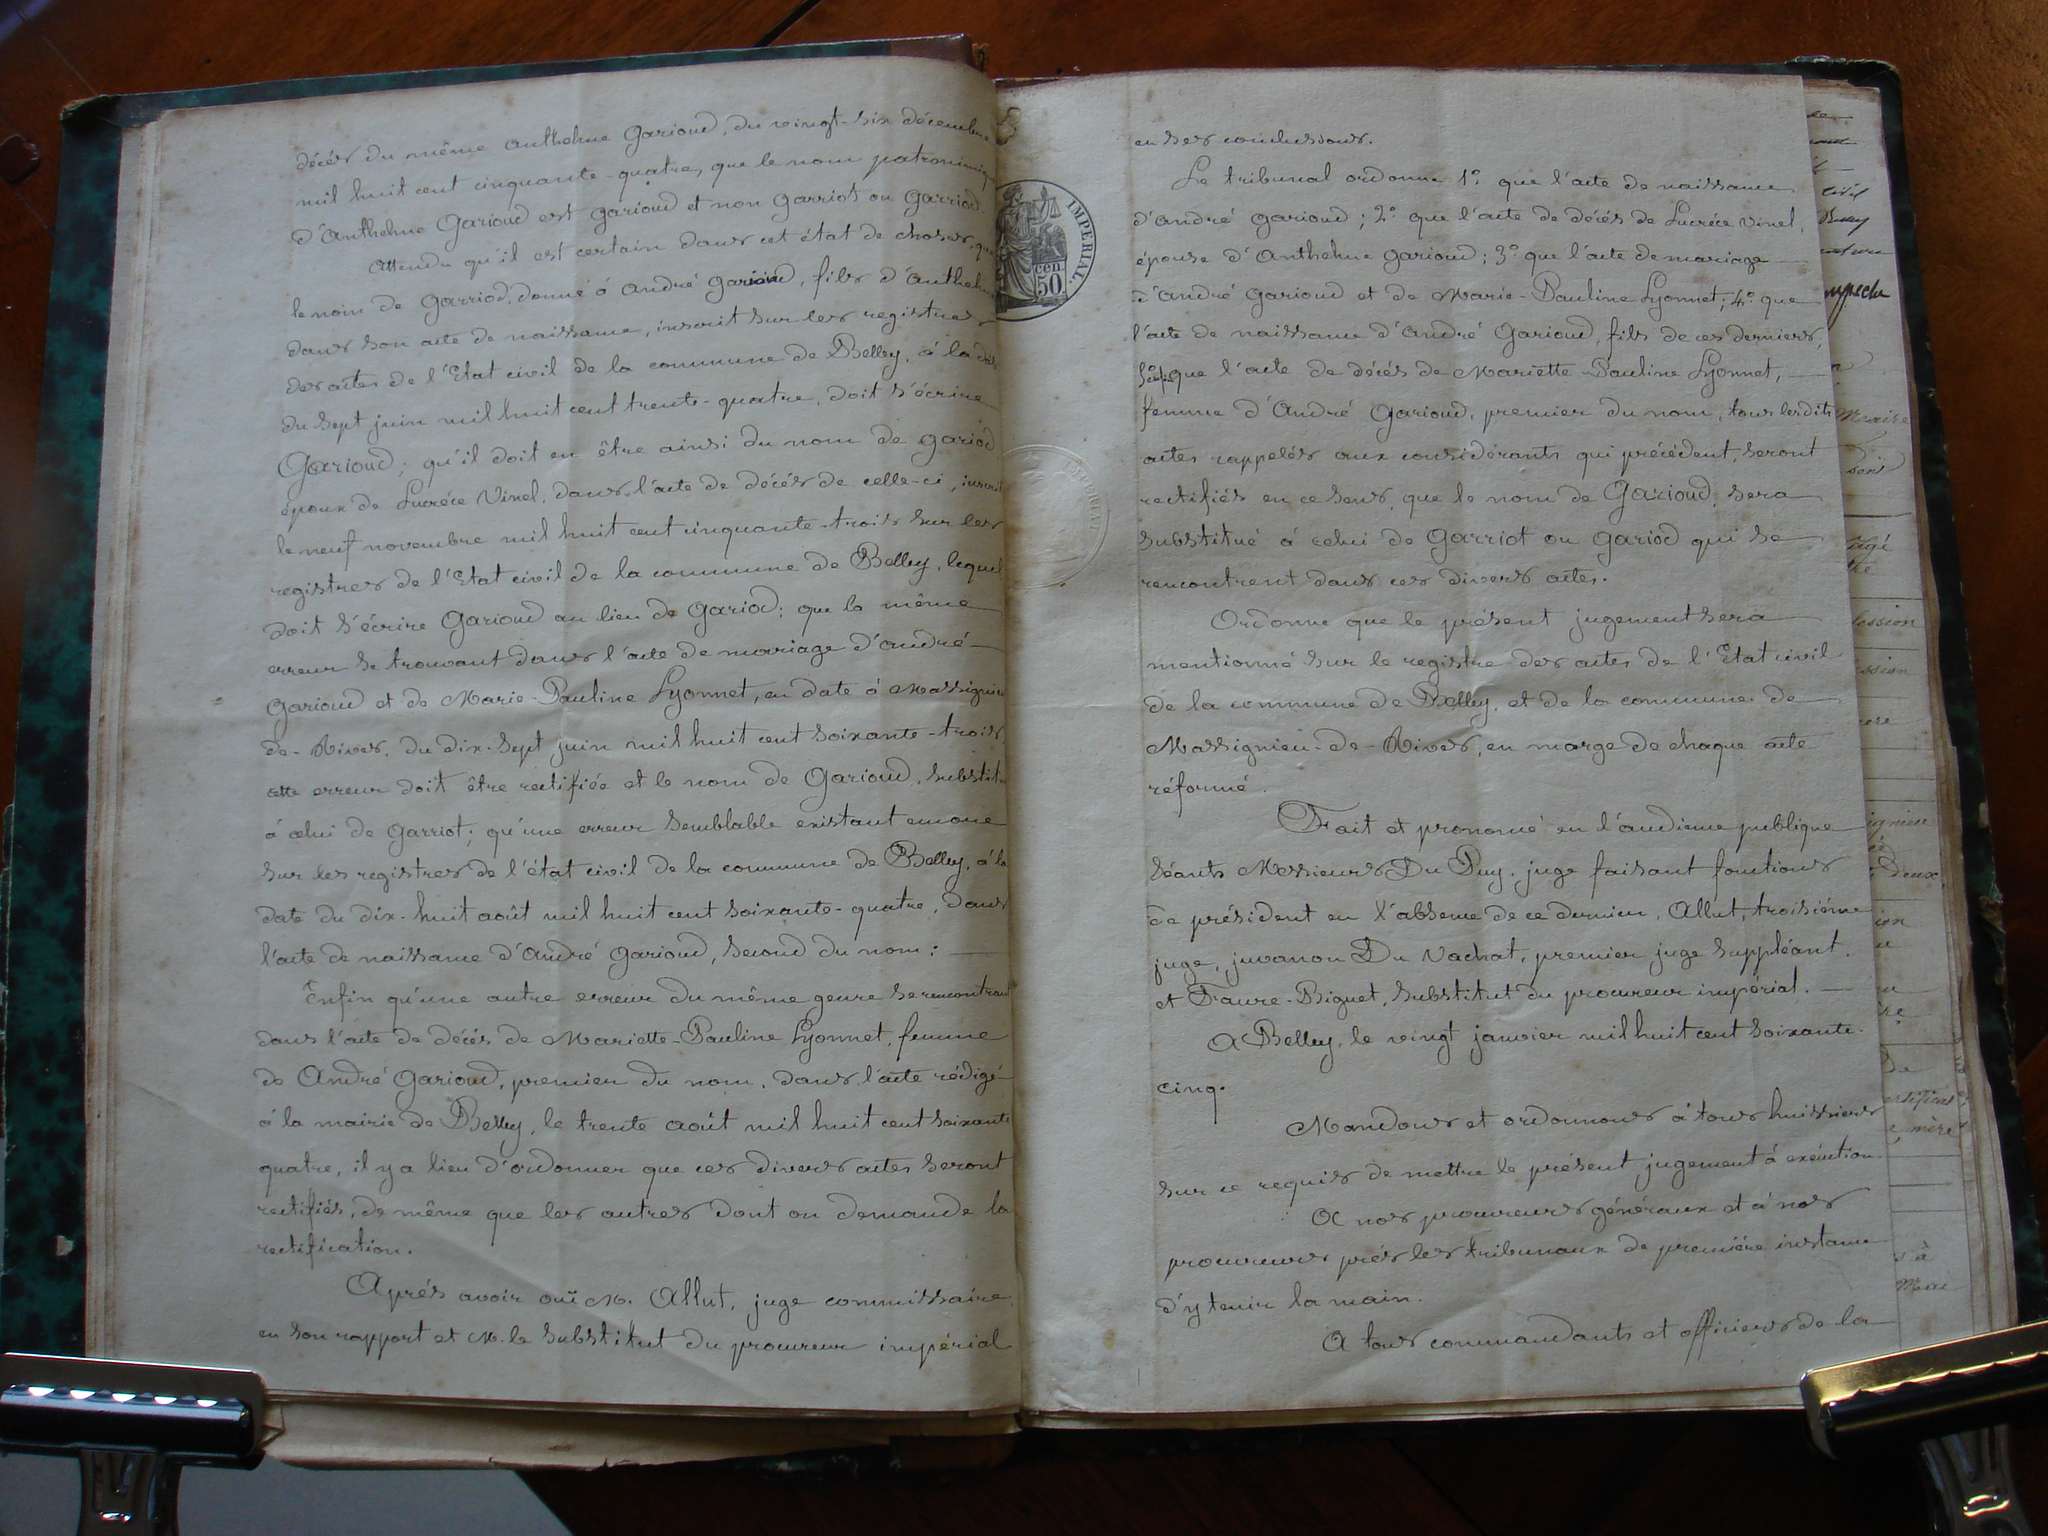 décès du même Anthelme Garioud, du vingt-six décembre
mil huit cent cinquante-quatre, que le nom patronimique
d'Anthelme Garioud est Garioud et non Garriot ou Garriod.
Attendu qu'il est certain dans cet état de choses, que
le nom de Garriod, donné à André Garioud, fils d'Anthelme
dans son acte de naissance, inscrit sur les registres
des actes de l'Etat civil de la commune de Belley, à la date
du sept juin mil huit cent trente-quatre, doit s'écrire
Garioud; qu'il doit en être ainsi du nom de Gariod
époux de Lucrèce Vinel, dans l'acte de décès de celle-ci, inscrit
le neuf novembre mil huit cent cinquante-trois sur les
registres de l'Etat civil de la commune de Belley, lequel
doit s'écrire Garioud au lieu de Gariod; que la même
erreur se trouvant dans l'acte de mariage d'André
Garioud et de Marie-Pauline Lyonnet, en date à Massignieu
de-Rives, du dix-sept juin mil huit cent soixante-trois,
cette erreur doit être rectifiée et le nom de Garioud, substitué
à celui de Garriot; qu'une erreur semblable existant encore
sur les registres de l'état civil de la commune de Belley, à la
date du dix-huit août mil huit cent soixante-quatre, dans
l'acte de naissance d'André Garioud, second du nom;
Enfin qu'une autre erreur du même genre se rencontrant
dans l'acte de décès de Mariette-Pauline Lyonnet, femme
de André Garioud, premier du nom, dans l'acte rédigé
à la mairie de Belley, le trente août mil huit cent soixante
quatre, il y a lieu d'ordonner que ces divers actes seront
rectifiés, de même que les autres dont on demande la
rectification.
Après avoir ouï M. Allut, juge commissaire,
en son rapport et M. le substitut du procureur impérial
IMPERIAL.
50 cen.
en ses conclusions.
Le tribunal ordonne 1° que l'acte de naissance
d'André Garioud; 2° que l'acte de décès de Lucrèce Vinel,
épouse d'Anthelme Garioud; 3° que l'acte de mariage
d'André Garioud et de Marie-Pauline Lyonnet; 4° que
l'acte de naissance d'André Garioud, fils de ces derniers,
que l'acte de décès de Mariette-Pauline Lyonnet,
femme d'André Garioud, premier du nom, tous lesdits
actes rappelés aux considérants qui précèdent, seront
rectifiés en ce sens, que le nom de Garioud, sera
substitué à celui de Garriot ou Gariod qui se
rencontrent dans ces divers actes.
Ordonne que le présent jugement sera
mentionné sur le registre des actes de l'Etat civil
de la commune de Belley, et de la commune de
Massignieu-de-Rives, en marge de chaque acte
réformé.
Fait et prononcé en l'audience publique
séants Messieurs Du Puy, juge faisant fonctions
de président en l'absence de ce dernier, Allut, troisième
juge, juvanon Du Vachat, premier juge suppléant,
et Faure-Biguet, substitut du procureur impérial.
A Belley, le vingt janvier mil huit cent soixante-
cinq.
Mandons et ordonnons à tous huissiers
sur ce requis de mettre le présent jugement à exécution.
A nos procureurs généraux et à nos
procureurs près les tribunaux de première instance
d'y tenir la main.
A tous commandants et officiers de la